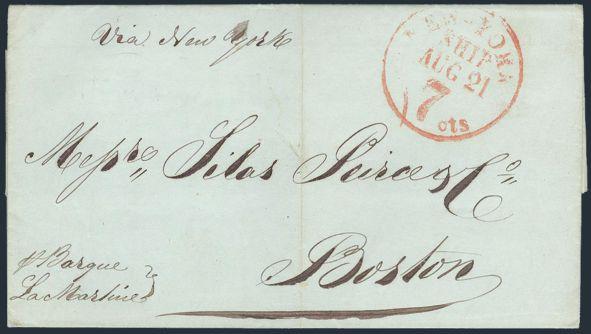 Via New York
NEW-YORK
SHIP
AUG 21
7
cts
Messrs. Silas Peirce & Co.
Boston
p Barque
La Martine